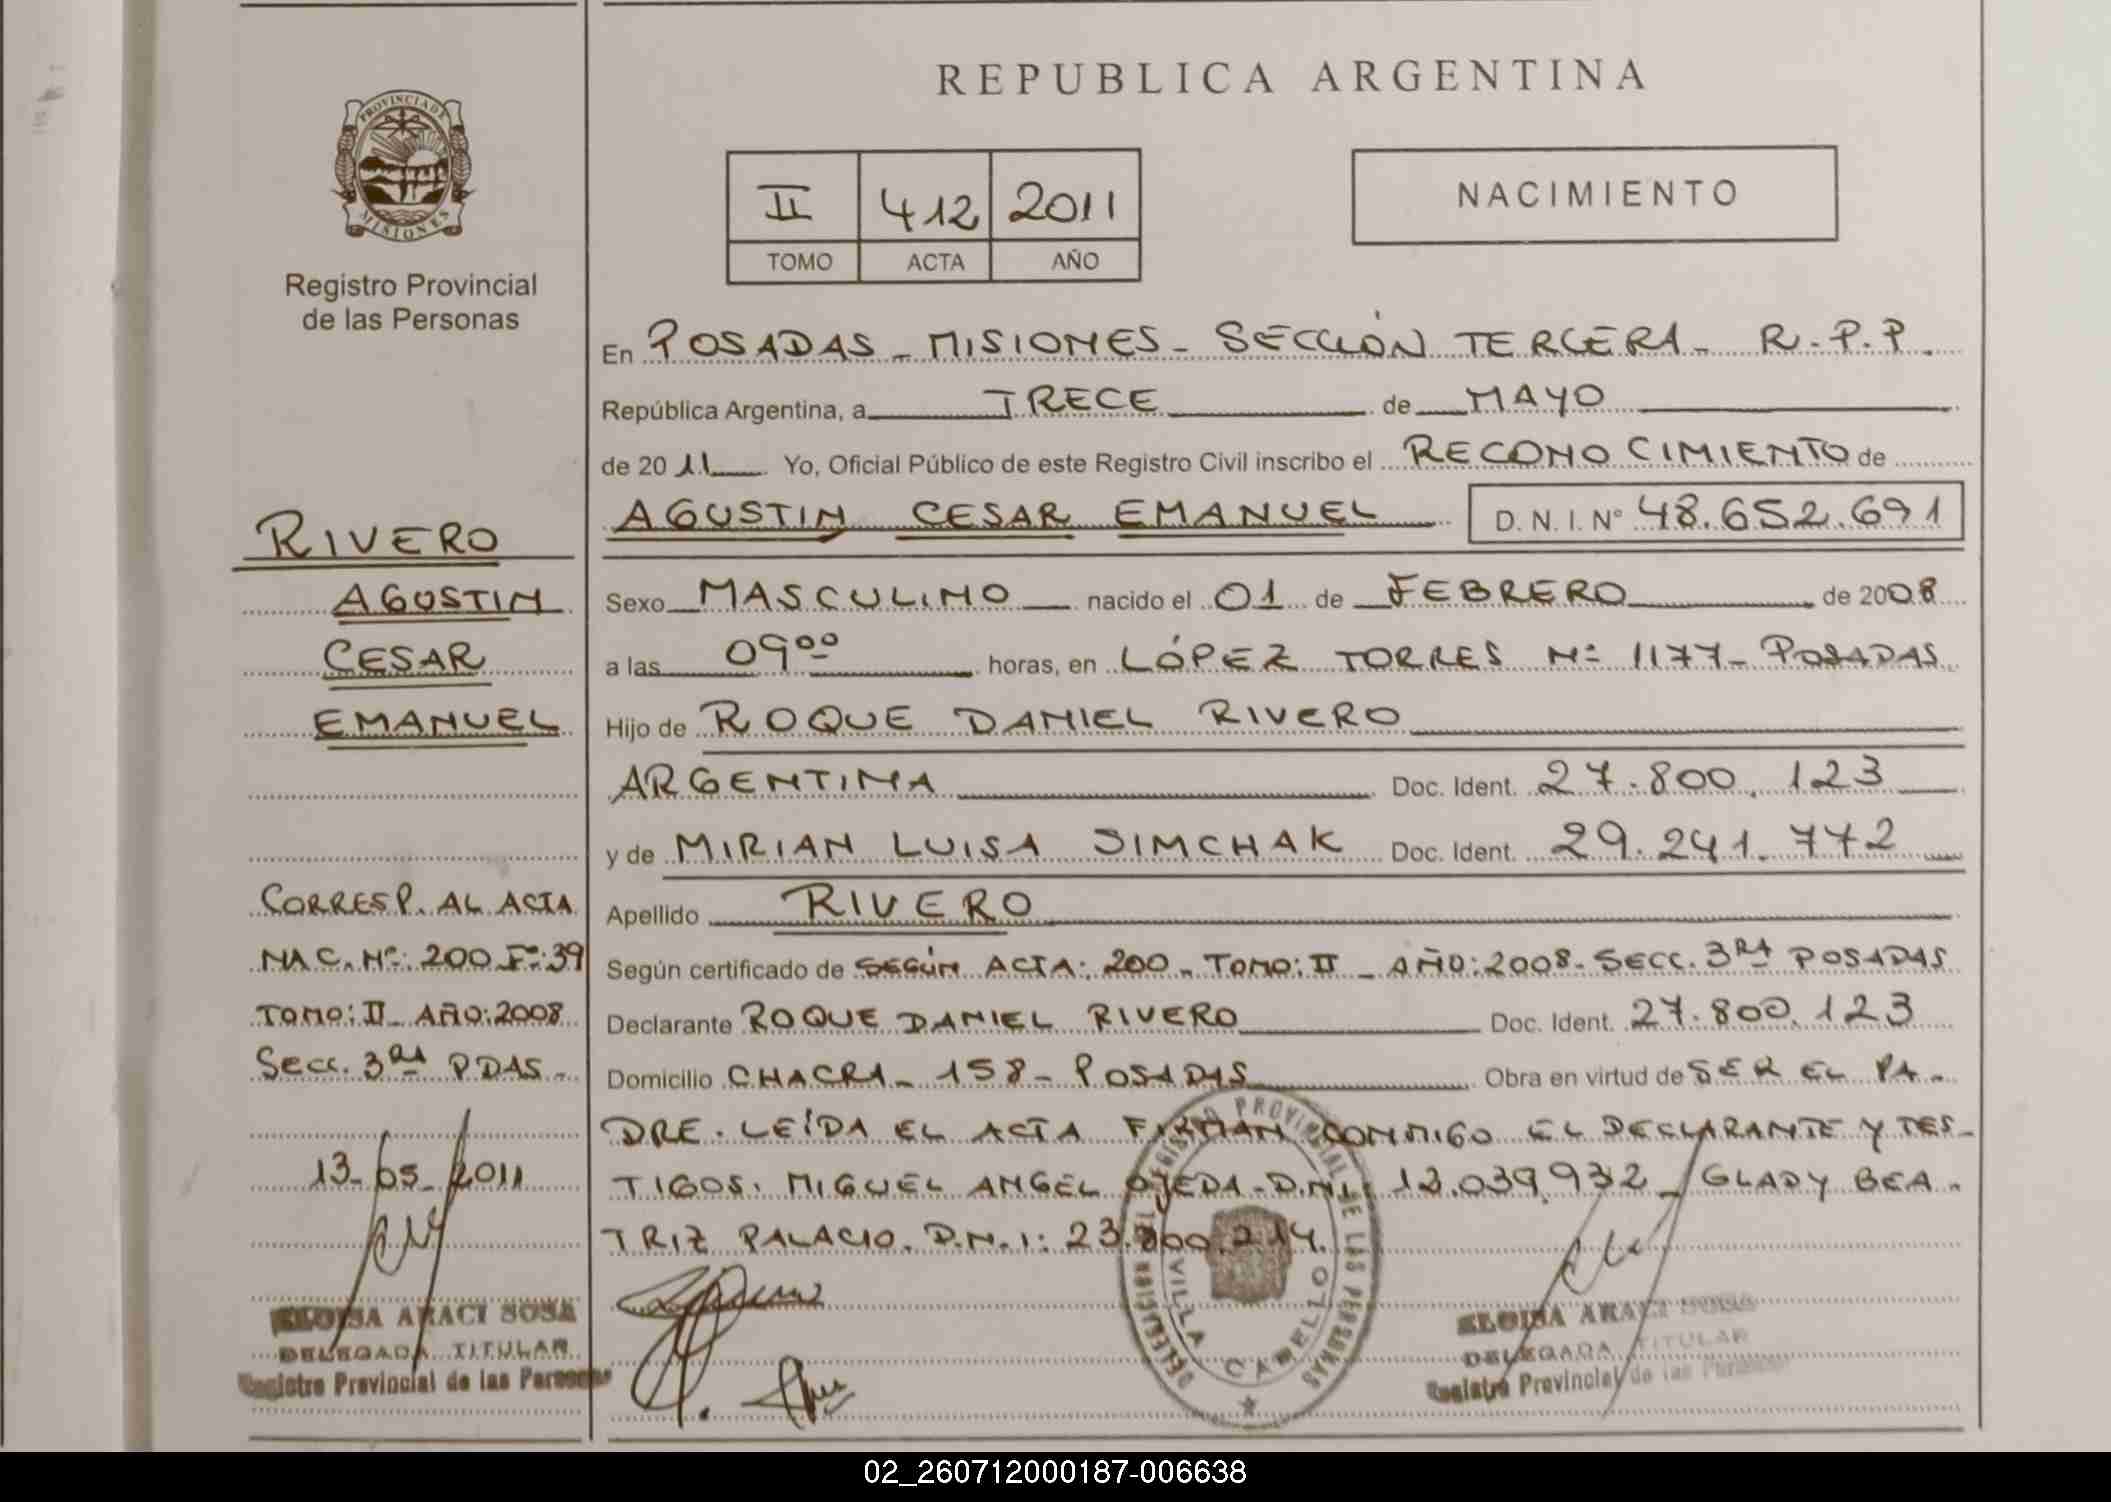 PROVINCIA DE
MISIONES
Registro Provincial
de las Personas
RIVERO
AGUSTIN
CESAR
EMANUEL
CORRESP. AL ACTA
NAC. Nº: 200 Fº: 39
TOMO: II_ AÑO: 2008
SECC. 3RA PDAS_
13_ 05_ 2011
ELOISA ARACI SOSA
DELEGADA TITULAR
Registro Provincial de las Personas
REPUBLICA ARGENTINA
II 412 2011
TOMO ACTA AÑO
NACIMIENTO
En POSADAS_ MISIONES_ SECCIÓN TERCERA_ R.P.P.
República Argentina, a TRECE de MAYO
de 2011 Yo, Oficial Público de este Registro Civil inscribo el RECONOCIMIENTO de
AGUSTIN CESAR EMANUEL D. N. I. Nº 48.652.691
Sexo MASCULINO nacido el 01 de FEBRERO de 2008
a las 09ºº horas, en LÓPEZ TORRES Nº 1177_ POSADAS
Hijo de ROQUE DANIEL RIVERO
ARGENTINA Doc. Ident. 27.800.123
y de MIRIAN LUISA SIMCHAK Doc. Ident. 29.241.772
Apellido RIVERO
Según certificado de SEGÚN ACTA: 200_ TOMO: II_ AÑO: 2008_ SECC. 3RA POSADAS
Declarante ROQUE DANIEL RIVERO Doc. Ident. 27.800.123
Domicilio CHACRA_ 158_ POSADAS Obra en virtud de SER EL PA_
DRE. LEÍDA EL ACTA FIRMAN CONMIGO EL DECLARANTE Y TES_
TIGOS: MIGUEL ANGEL OJEDA_ D.N.I: 12.039.932_ GLADY BEA_
TRIZ PALACIO. D.N.I: 23.800.214.
DELEGACION REGISTRO PROVINCIAL DE LAS PERSONAS
VILLA CABELLO
ELOISA ARACI SOSA
DELEGADA TITULAR
Registro Provincial de las Personas
02_260712000187-006638